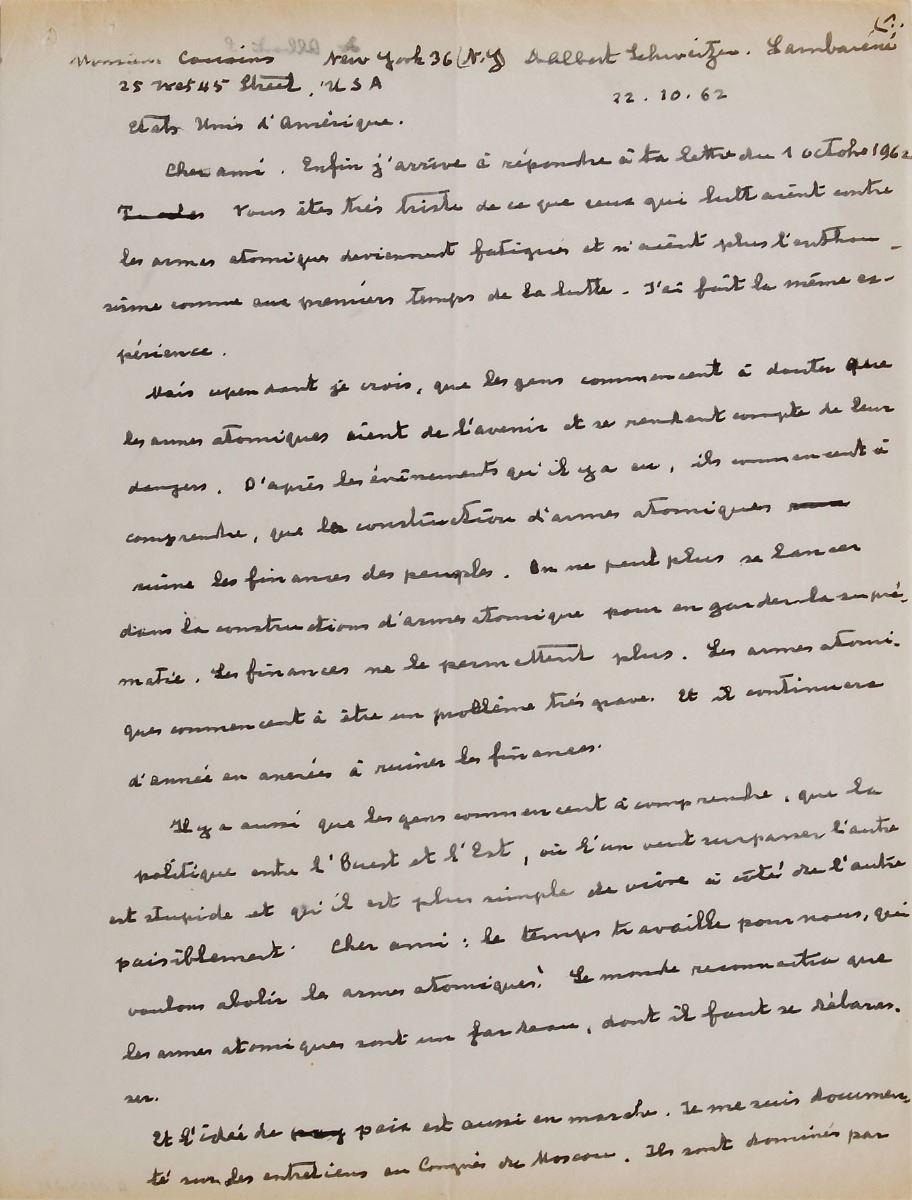 1.
Monsieur Cousins New York 36 (N.Y) Dr Albert Schweitzer. Lambaréné
25 West 45 Street, USA 22.10.62
Etats Unis d'Amérique.
Cher ami. Enfin j'arrive à répondre à ta lettre du 1 octobre 1962
Vous êtes très triste de ce que ceux qui luttaient contre
les armes atomiques deviennent fatigués et n'aient plus l'enthou-
siasme comme aux premiers temps de la lutte. J'ai fait la même ex-
périence.
Mais cependant je crois, que les gens commencent à douter que
les armes atomiques aient de l'avenir et se rendent compte de leur
dangers. D'après les évènements qu'il y a eu, ils commencent à
comprendre, que la construction d'armes atomiques
ruine les finances des peuples. On ne peut plus se lancer
dans la constructions d'armes atomique pour en garder la supré-
matie. Les finances ne le permettent plus. Les armes atomi-
ques commencent à être un problème très grave. Et il continuera
d'année en années à ruiner les finances.
Il y a aussi que les gens commencent à comprendre, que la
politique entre l'Ouest et l'Est, où l'un veut surpasser l'autre
est stupide et qu'il est plus simple de vivre à côté de l'autre
paisiblement. Cher ami: le temps travaille pour nous, qui
voulons abolir les armes atomiques! Le monde reconnaitra que
les armes atomiques sont un fardeau, dont il faut se débaras-
ser.
Et l'idée de paix est aussi en marche. Je me suis documen-
té sur les entretiens au Congrès de Moscou. Ils sont dominés par